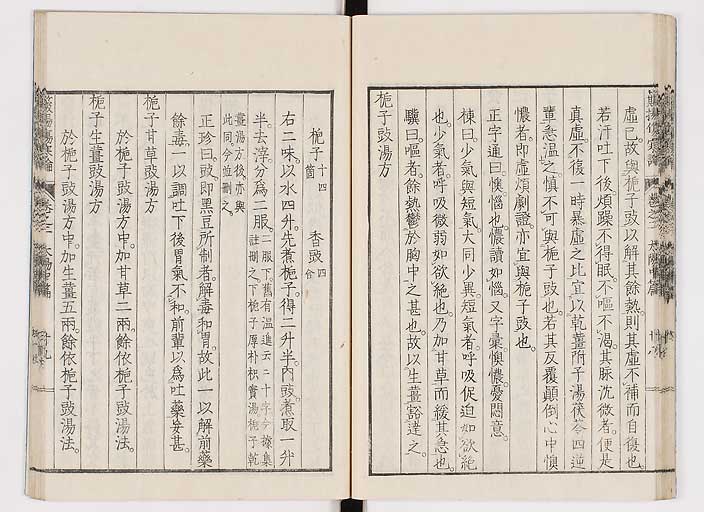 虛已。故與梔子豉以解其餘熱。則其虛不補而自復也。
若汗吐下後煩躁不得眠。不嘔不渴。其脉沈微者。便是
真虛不復一時暴虛之比。宜以乾薑附子湯茯苓四逆
輩急溫之。愼不可與梔子豉也。若其反覆顚倒心中懊
憹者。即虛煩劇證。亦宜與梔子豉也。
正字通曰。懊惱也。憹讀如惱。又字彙懊憹。憂悶意。
棟曰。少氣與短氣。大同少異。短氣者。呼吸促迫如欲絕
也。少氣者。呼吸微弱如欲絕也。乃加甘草而緩其急也。
驥曰。嘔者。餘熱鬱於胸中之甚也。故以生薑豁達之。
梔子豉湯方
梔子十四箇 香豉四合
右二味。以水四升。先煮梔子。得二升半。內豉煮。取一升
半。去滓。分爲二服。二服下舊有溫進云云十字。今據集
註刪之。下梔子厚朴枳實湯。梔子乾
薑湯方後。亦與
此同。今並刪之。
正珍曰。豉即黑豆所制者。解毒和胃。故此一以解前藥
餘毒。一以調吐下後胃氣不和。前輩以爲吐藥妄甚。
梔子甘草豉湯方
於梔子豉湯方中。加甘草二兩。餘依梔子豉湯法。
梔子生薑豉湯方
於梔子豉湯方中。加生薑五兩。餘依梔子豉湯法。